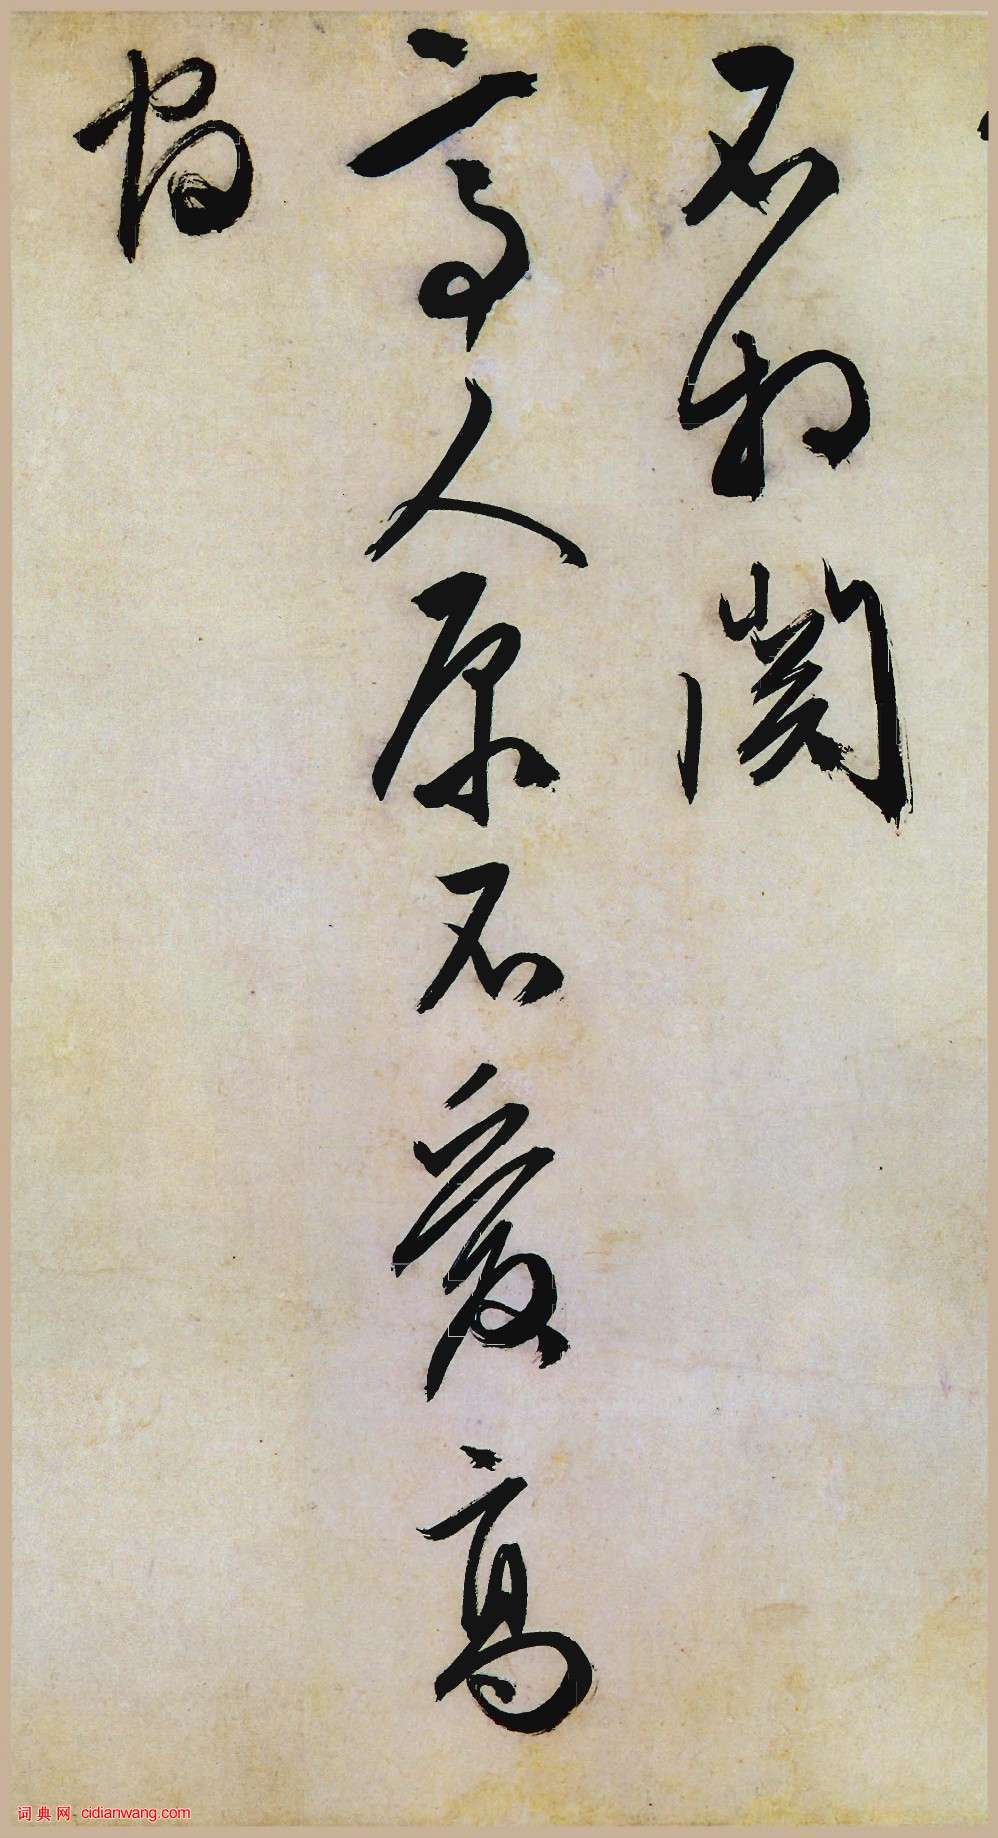 不相關
高人原不愛高
詞典网 cidianwang.com